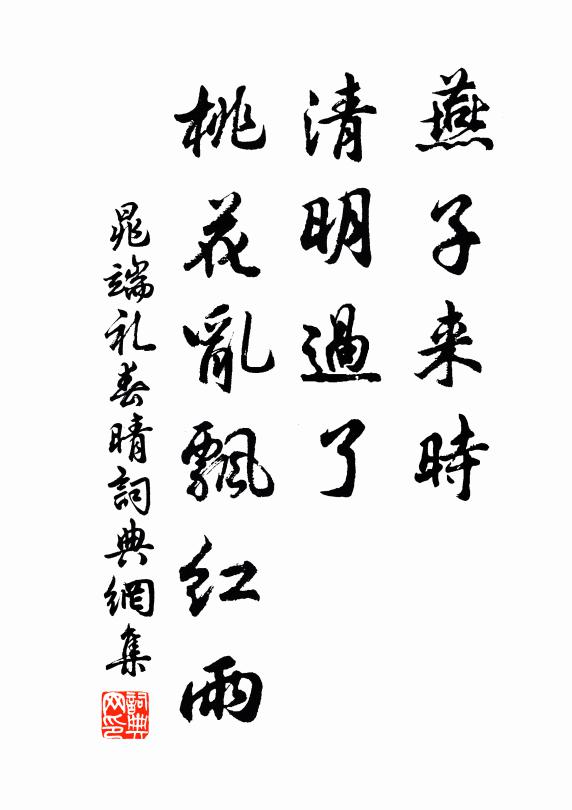 燕子来時
清明過了
桃花亂飄红雨
晁端礼春晴詞典網集
詞典网印